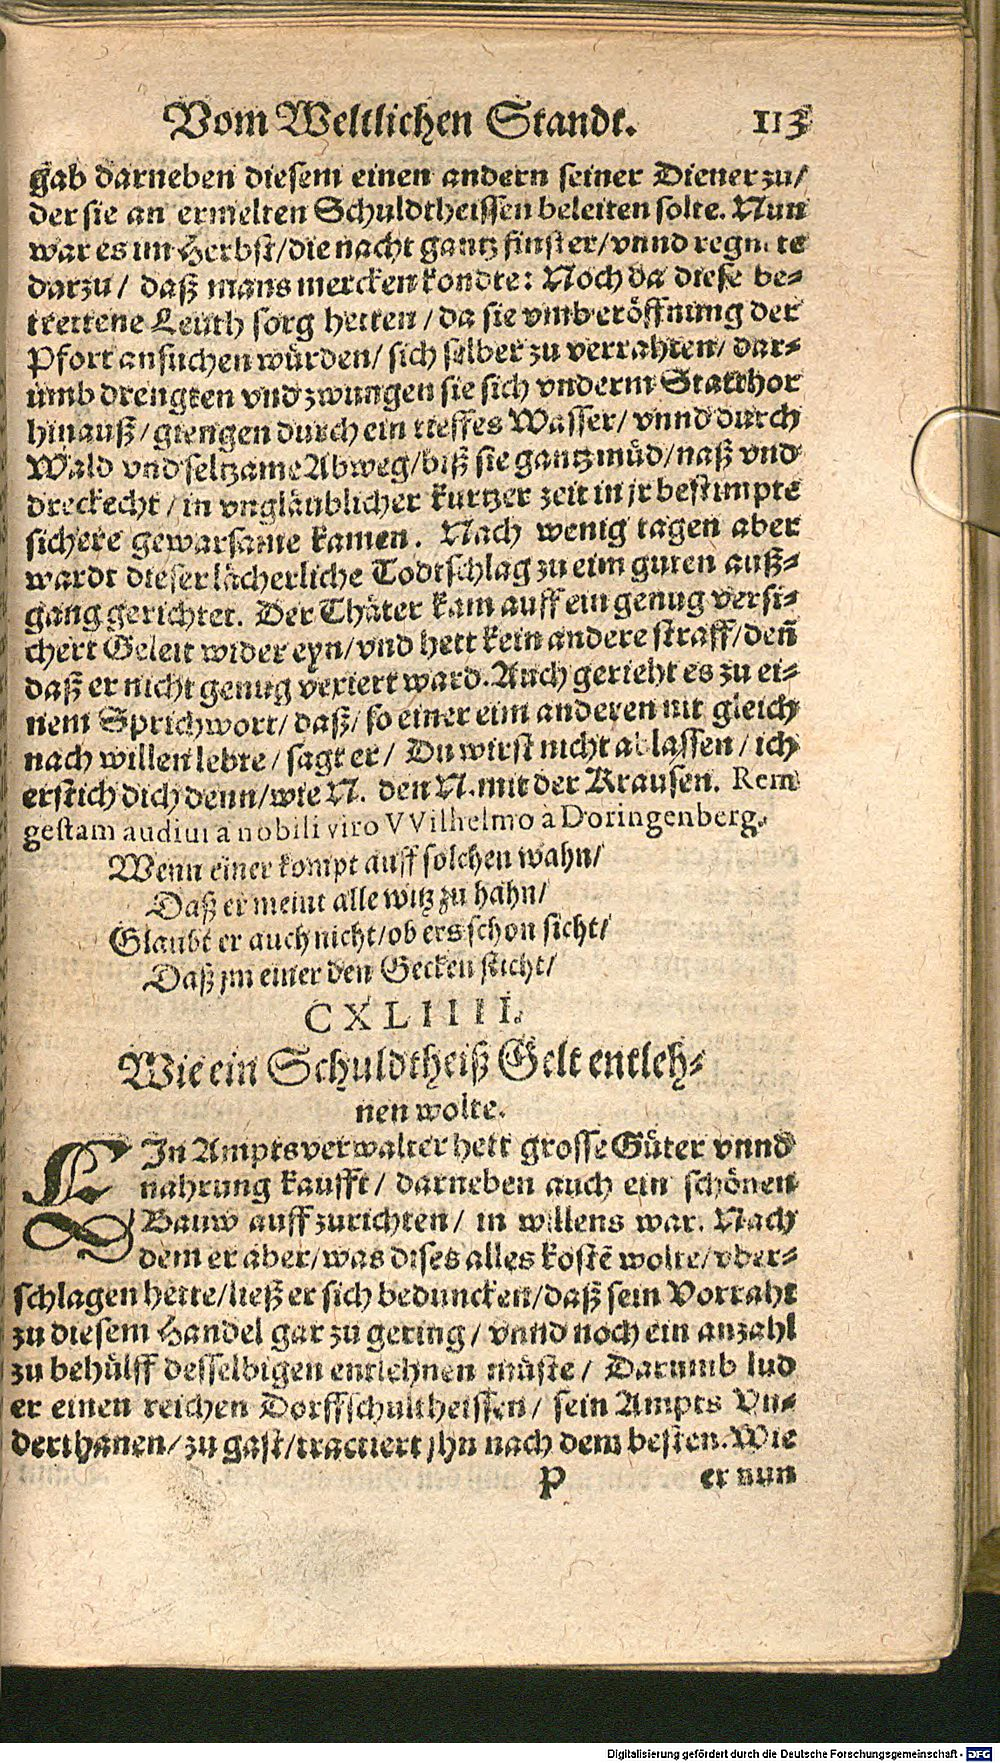 Vom Weltlichen Standt. 113
gab darneben diesem einen andern seiner Diener zu/
der sie an ermelten Schuldtheissen beleiten solte. Nun
war es im Herbst/die nacht gantz finster/vnnd regnete
darzu/ daß mans mercken kondte: Noch da diese be-
trettene Leuth sorg hetten/da sie vmb eröffnung der
Pfort ansuchen würden/ sich selber zu verrahten/ dar-
umb drengten vnd zwungen sie sich vnderm Statthor
hinauß/giengen durch ein tieffes Wasser/ vnnd durch
Wald vnd seltzame Abweg/biß sie gantz müd/naß vnd
dreckecht/in vngläublicher kurtzer zeit in jr bestimpte
sichere gewarsame kamen. Nach wenig tagen aber
wardt dieser lächerliche Todtschlag zu eim guten auß-
gang gerichtet. Der Thäter kam auff ein genug versi-
chert Geleit wider eyn/vnd hett kein andere straff/deñ
daß er nicht genug vexiert ward. Auch gerieht es zu ei-
nem Sprichwort/ daß/ so einer eim anderen nit gleich
nach willen lebte/ sagt er/ Du wirst nicht ablassen/ ich
erstich dich denn/wie N. den N. mit der Krausen. Rem
gestam audiui a nobili viro VVilhelmo à Doringenberg.
Wenn einer kompt auff solchen wahn/
Daß er meint alle witz zu hahn/
Glaubt er auch nicht/ob ers schon sicht/
Daß jm einer den Gecken sticht/
CXLIIII.
Wie ein Schuldtheiß Gelt entleh-
nen wolte.
EIn Amptsverwalter hett grosse Güter vnnd
nahrung kaufft/ darneben auch ein schönen
Bauw auffzurichten/ in willens war. Nach
dem er aber/was dises alles kostẽ wolte/vber-
schlagen hette/ließ er sich beduncken/daß sein Vorraht
zu diesem Handel gar zu gering/ vnnd noch ein anzahl
zu behülff desselbigen entlehnen müste/ Darumb lud
er einen reichen Dorffschultheissen/ sein Ampts Vn-
derthanen/zu gast/tractiert jhn nach dem besten. Wie
P er nun
Digitalisierung gefördert durch die Deutsche Forschungsgemeinschaft - DFG